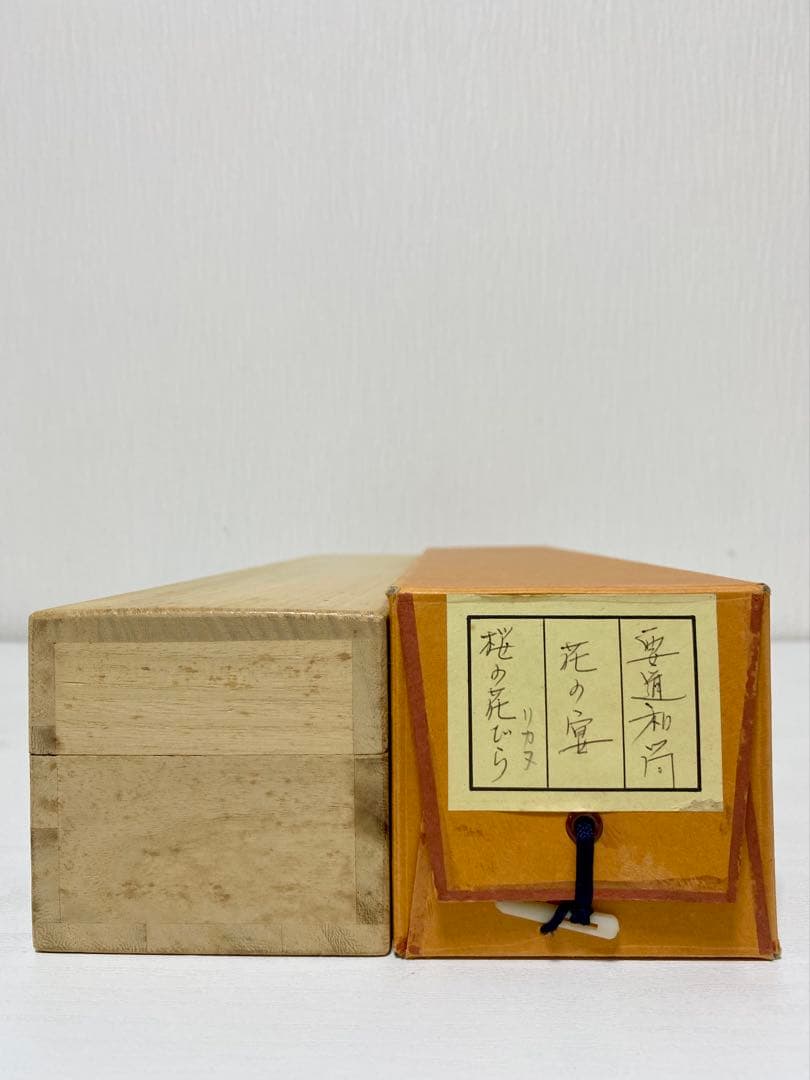 要道和尚
花の宴
桜の花びら
リカヌ